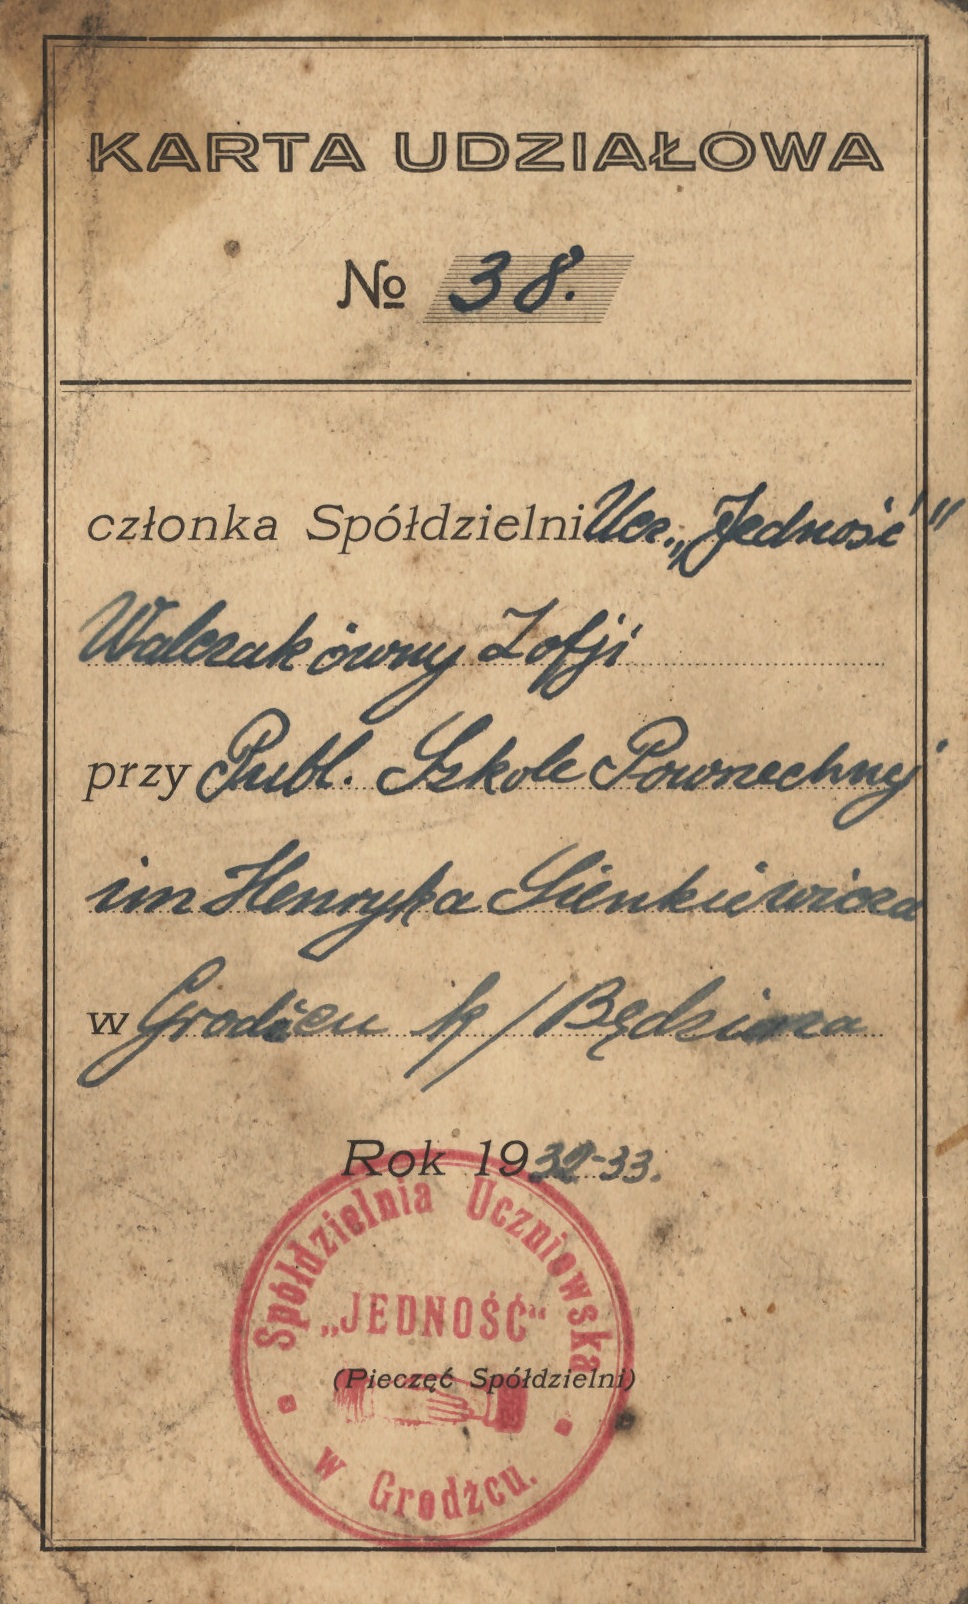 KARTA UDZIAŁOWA
No 38.
członka Spółdzielni Ucz. „Jedność”
Walczakówny Zofji
przy Publ. Szkole Powszechnej
im Henryka Sienkiewicza
w Grodźcu k/Będzina
Rok 1932-33.
Spółdzielnia Uczniowska
„JEDNOŚĆ“
(Pieczęć Spółdzielni)
w Grodźcu.